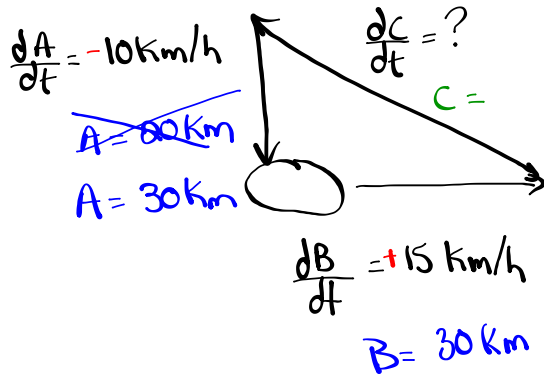 dA/dt = -10 Km/h
dC/dt = ?
C =
A = 30 Km
dB/dt = +15 Km/h
B = 30 Km